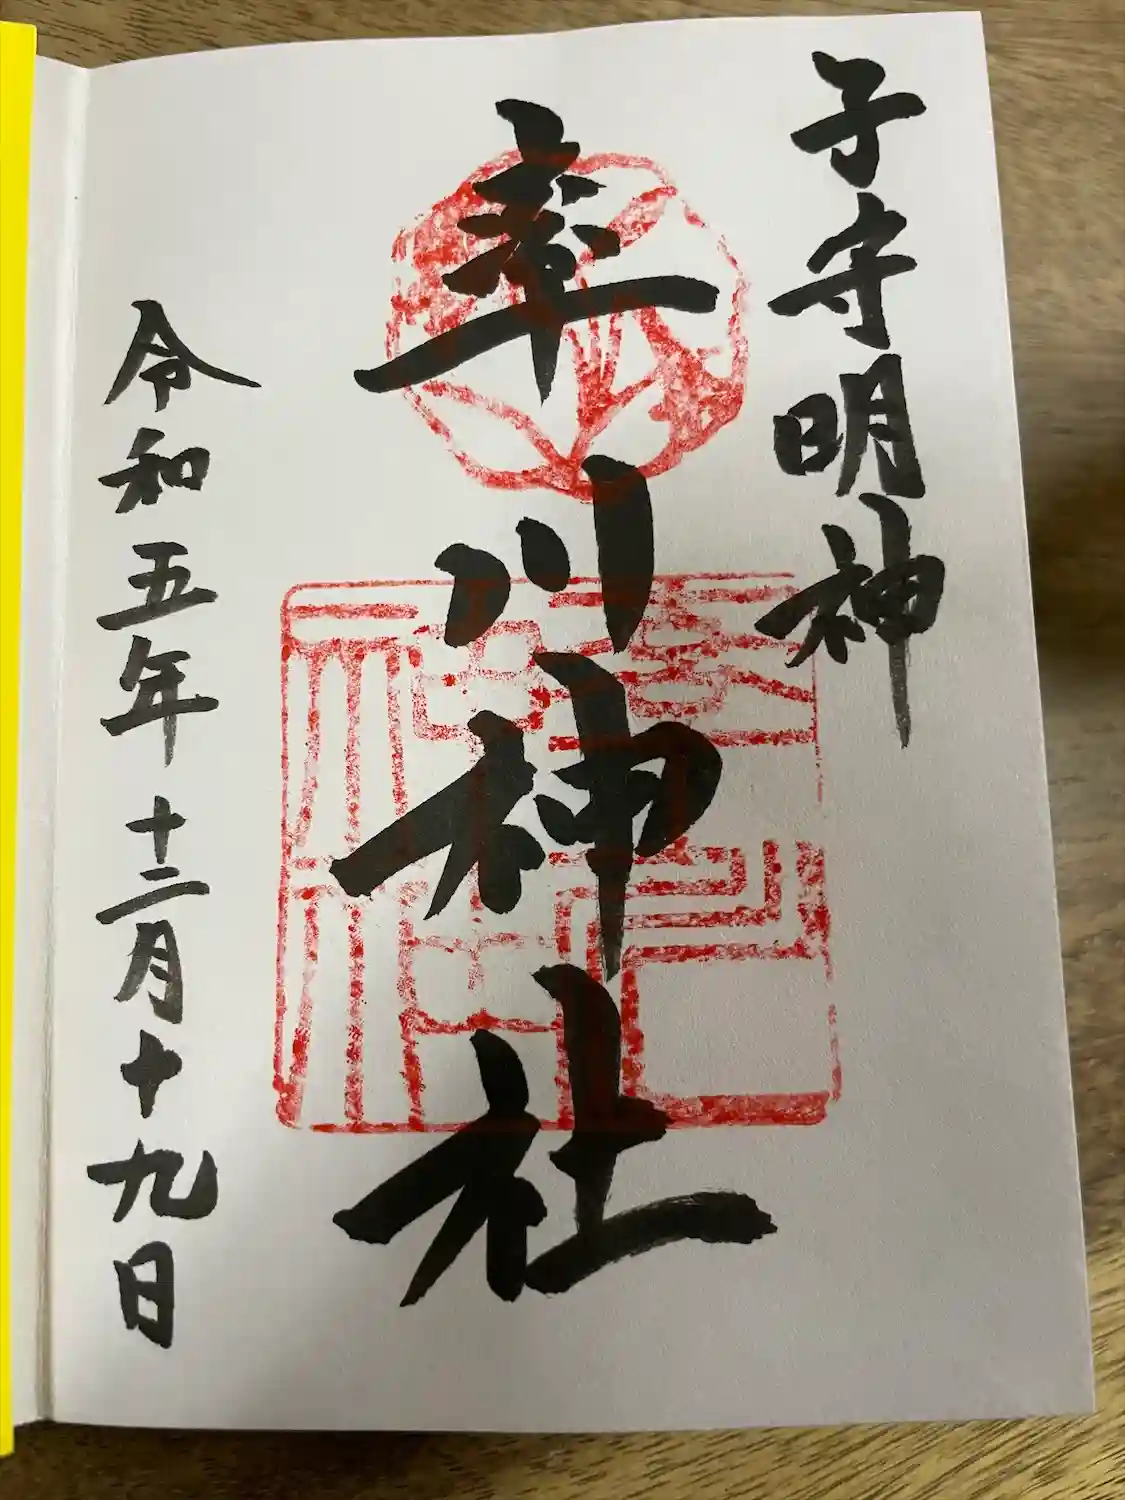 子守明神
率川神社
令和五年十二月十九日